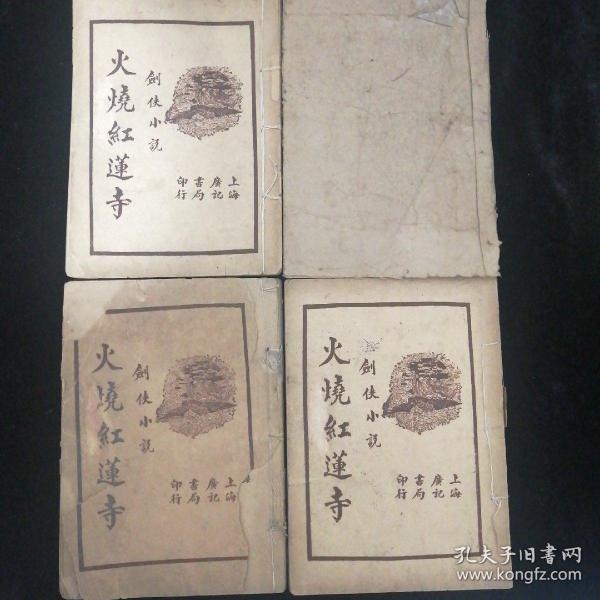 火燒紅蓮寺
劍俠小説
上海
廣記
書局
印行
火燒紅蓮寺
劍俠小説
上海
廣記
書局
印行
火燒紅蓮寺
劍俠小説
上海
廣記
書局
印行
孔夫子旧书网
www.kongfz.com